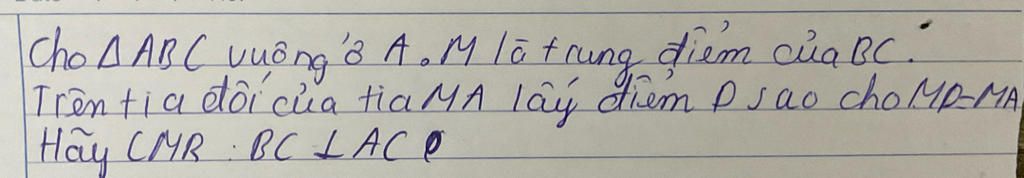 Cho Δ ABC vuông ở A. M là trung điểm của BC.
Trên tia đối của tia MA lấy điểm D sao cho MD=MA
Hãy CMR : BC ⊥ AC